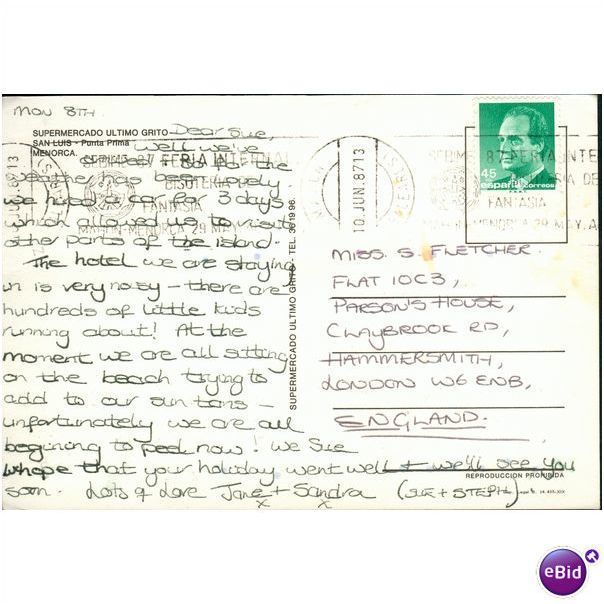 MON 8TH
SUPERMERCADO ULTIMO GRITO
SAN LUIS - Punta Prima
MENORCA.
Dear Sue,
Well we've
so far the
weather has been lovely
we hired a car for 3 days
which allowed us to visit
other parts of the island.
The hotel we are staying
in is very noisy - there are
hundreds of little kids
running about! At the
moment we are all sitting
on the beach trying to
add to our sun tans -
unfortunately we are all
beginning to peel now! We
hope that your holiday went well + we'll see you
soon. Lots of Love Jane + Sandra (SUE + STEPH)
x x
SUPERMERCADO ULTIMO GRITO - TEL. 36 19 96.
87 FERIA INTER
BISUTERIA
FANTASIA
MAHON-MENORCA 29 MAY
10 JUN. 87 13
SEBIME 87 FERIA INTE
FANTASIA
MAHON-MENORCA 29 MAY. A
45
españa correos
MISS. S. FLETCHER.
FLAT 10C3,
PARSON'S HOUSE,
CLAYBROOK RD,
HAMMERSMITH,
LONDON W6 8NB,
ENGLAND.
REPRODUCCION PROHIBIDA
eBid